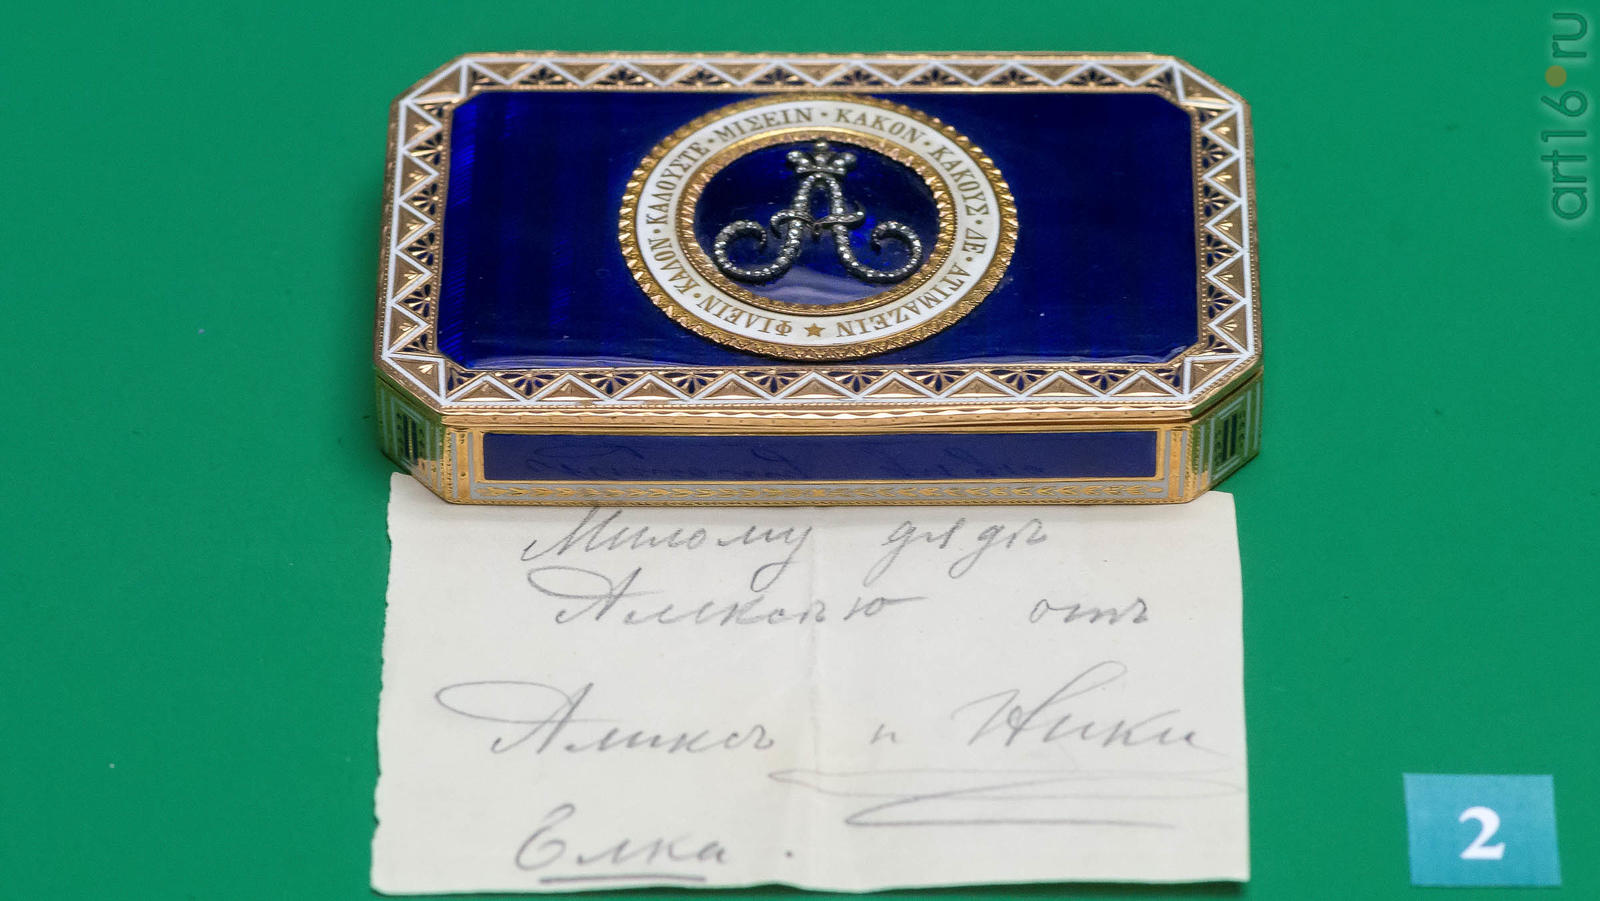 ΦΙΛΕΙΝ · ΚΑΛΟΝ · ΚΑΛΟΥΣΤΕ · ΜΙΣΕΙΝ · ΚΑΚΟΝ · ΚΑΚΟΥΣ · ΔΕ · ΑΤΙΜΑΖΕΙΝ
А
Милому дядѣ
Алексѣю отъ
Аликсъ и Ники
Елка.
2
art16.ru